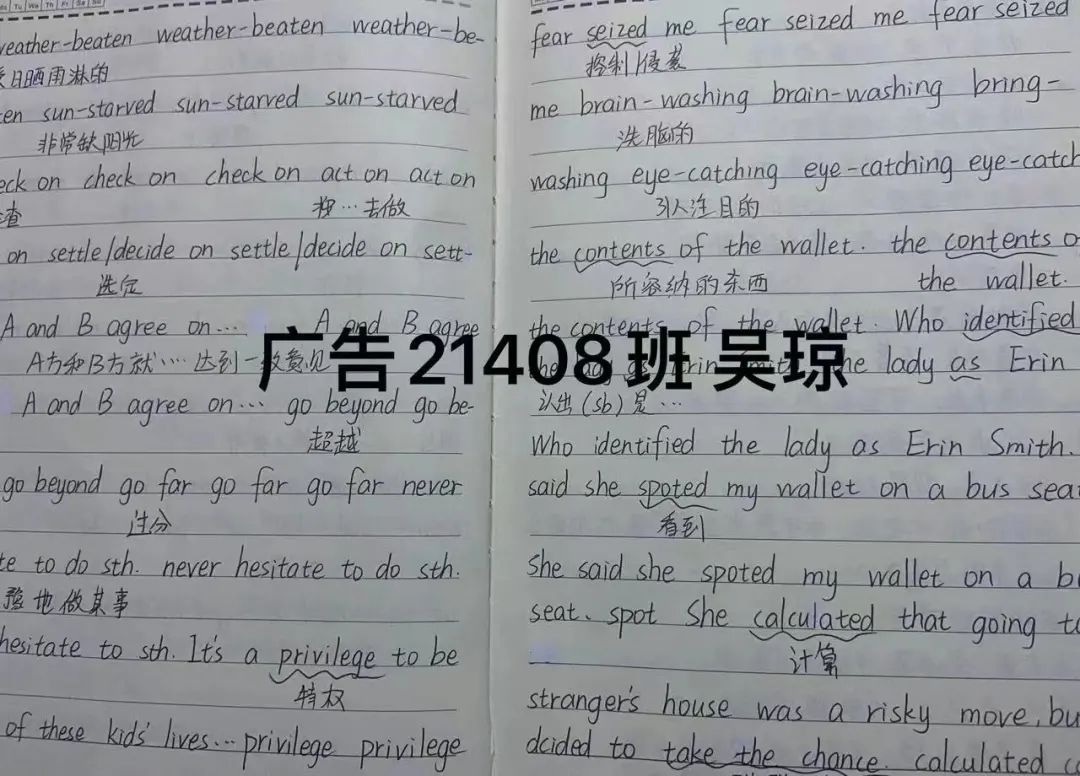 Tu We Th Fr Sa Su
weather-beaten weather-beaten weather-be-
日晒雨淋的
ten sun-starved sun-starved sun-starved
非常缺阳光
eck on check on check on act on act on
查 按…去做
on settle/decide on settle/decide on sett-
选定
A and B agree on... A and B agree
A方和B方就…达到一致意见
A and B agree on... go beyond go be-
超越
go beyond go far go far go far never
过分
te to do sth. never hesitate to do sth.
豫地做某事
hesitate to sth. It's a privilege to be
特权
of these kids' lives... privilege privilege
fear seized me fear seized me fear seized
控制/侵袭
me brain-washing brain-washing bring-
洗脑的
washing eye-catching eye-catching eye-catch
引人注目的
the contents of the wallet. the contents o
所容纳的东西 the wallet.
the contents of the wallet. Who identified
the lady as Erin
认出(sb)是…
Who identified the lady as Erin Smith.
said she spoted my wallet on a bus sea
看到
She said she spoted my wallet on a b
seat. spot She calculated that going to
计算
stranger's house was a risky move, bu
dcided to take the chance. calculated
广告21408班 吴琼